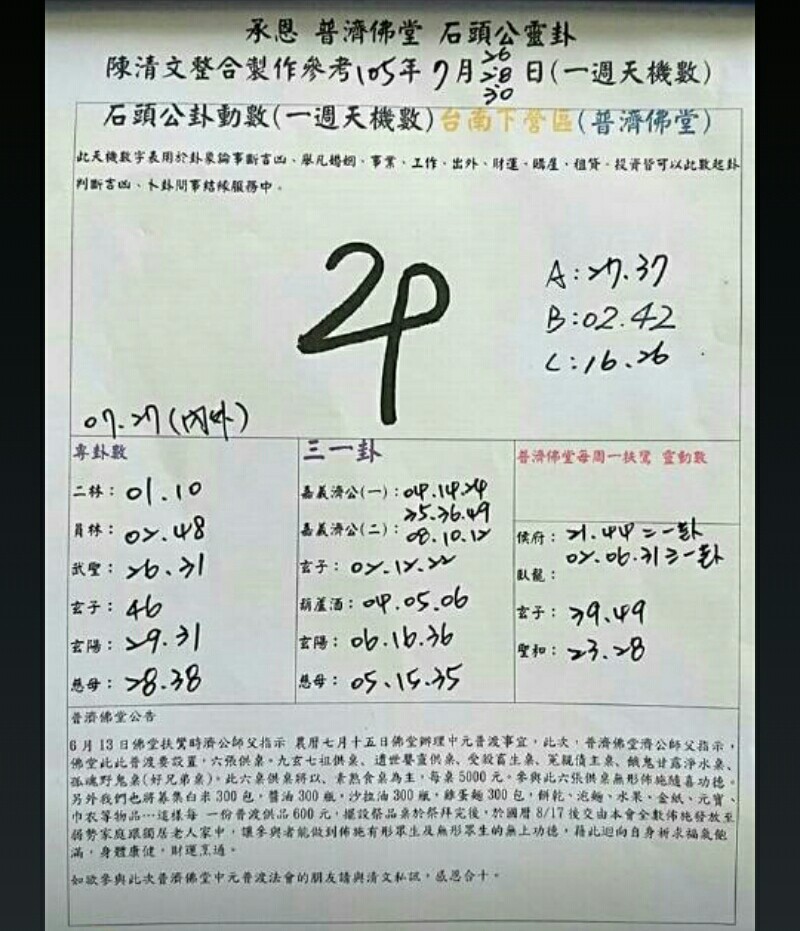 承恩 普濟佛堂 石頭公靈卦
陳清文整合製作參考105年7月26 28 30日(一週天機數)
石頭公卦動數(一週天機數)台南下營區(普濟佛堂)
此天機數字表用於卦象論事斷吉凶、舉凡婚姻、事業、工作、出外、財運、購屋、租賃、投資皆可以此數起卦
判斷吉凶、卜卦問事結緣服務中。
A:27.37
B:02.42
C:16.26
07.27(內外)
專卦數
二林:01.10
員林:02.48
武聖:26.31
玄子:46
玄陽:29.31
慈母:28.38
三一卦
嘉義濟公(一):04.14.24
35.36.49
嘉義濟公(二):08.10.12
玄子:02.12.22
葫蘆酒:04.05.06
玄陽:06.16.36
慈母:05.15.35
普濟佛堂每周一扶鸞 靈動數
侯府:21.44二一卦
02.06.31三一卦
臥龍:
玄子:39.49
聖和:23.28
普濟佛堂公告
6月13日佛堂扶鸞時濟公師父指示 農曆七月十五日佛堂辦理中元普渡事宜,此次,普濟佛堂濟公師父指示,
佛堂此此普渡要設置,六張供桌。九玄七祖供桌、遺世嬰靈供桌、受殺畜生桌、冤親債主桌、餓鬼甘露淨水桌、
孤魂野鬼桌(好兄弟桌)。此六桌供桌將以、素熟食桌為主,每桌5000元。參與此六張供桌無形佈施隨喜功德。
另外我們也將募集白米300包,醬油300瓶,沙拉油300瓶,雞蛋麵300包,餅乾、泡麵、水果、金紙、元寶、
巾衣等物品…這樣每 一份普渡供品600元,擺設祭品桌於祭拜完後,於國曆8/17後交由本會全數佈施發放至
弱勢家庭跟獨居老人家中,讓參與者能做到佈施有形眾生及無形眾生的無上功德,藉此迴向自身祈求福氣飽
滿,身體康健,財運亨通。
如欲參與此次普濟佛堂中元普渡法會的朋友請與清文私訊,感恩合十。